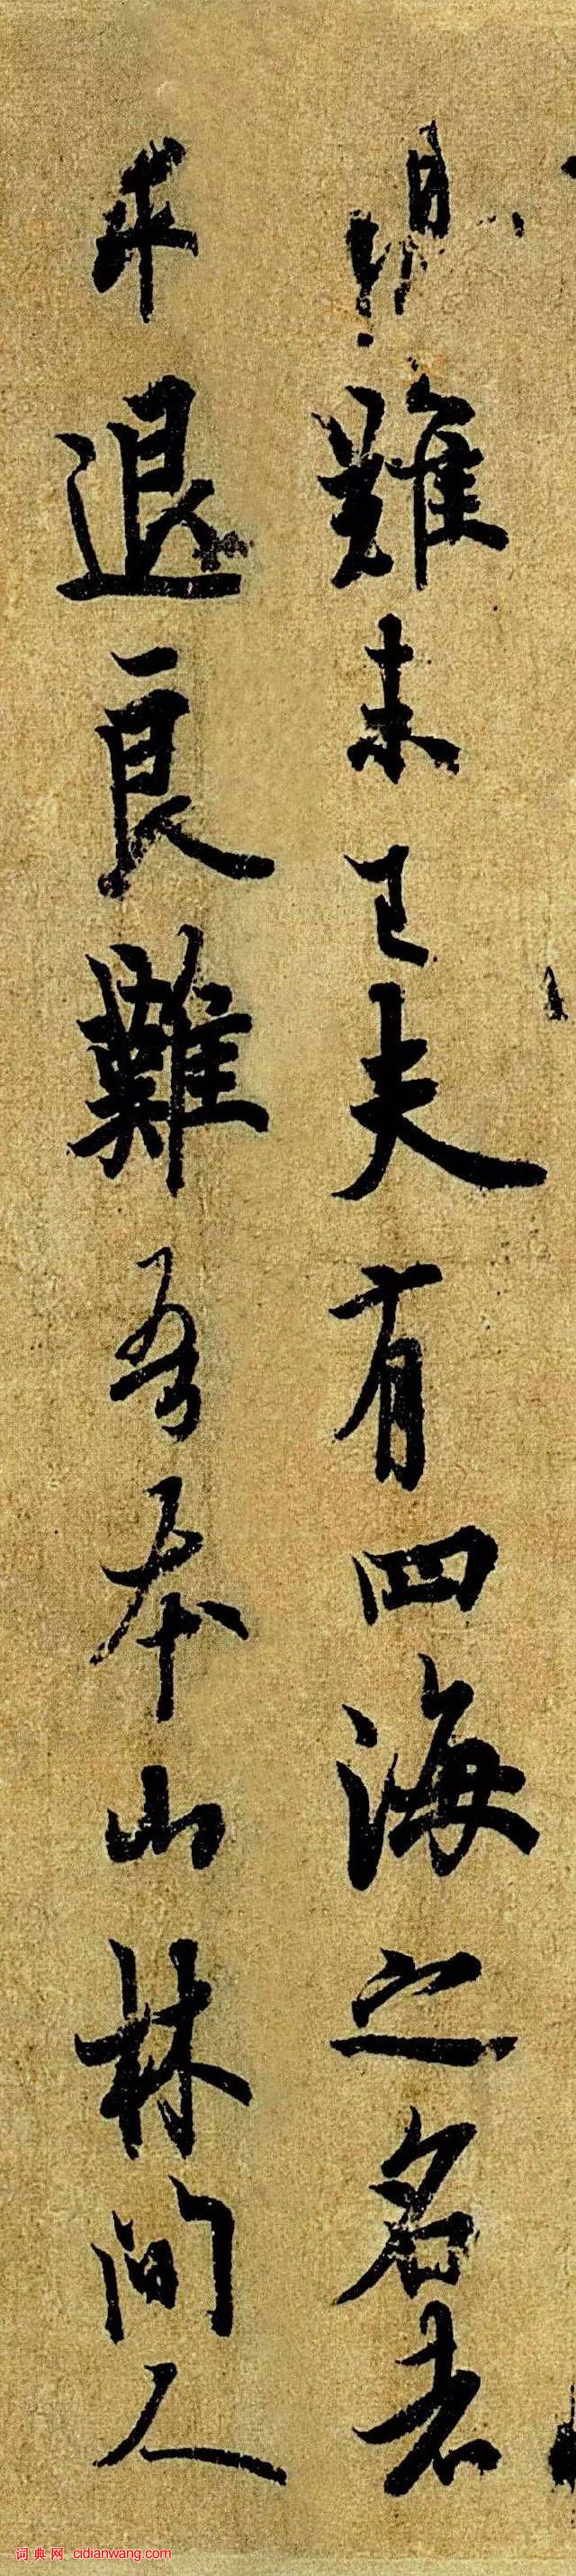 難未已夫有四海之名者
求退良難吾本山林間人
词典网 cidianwang.com